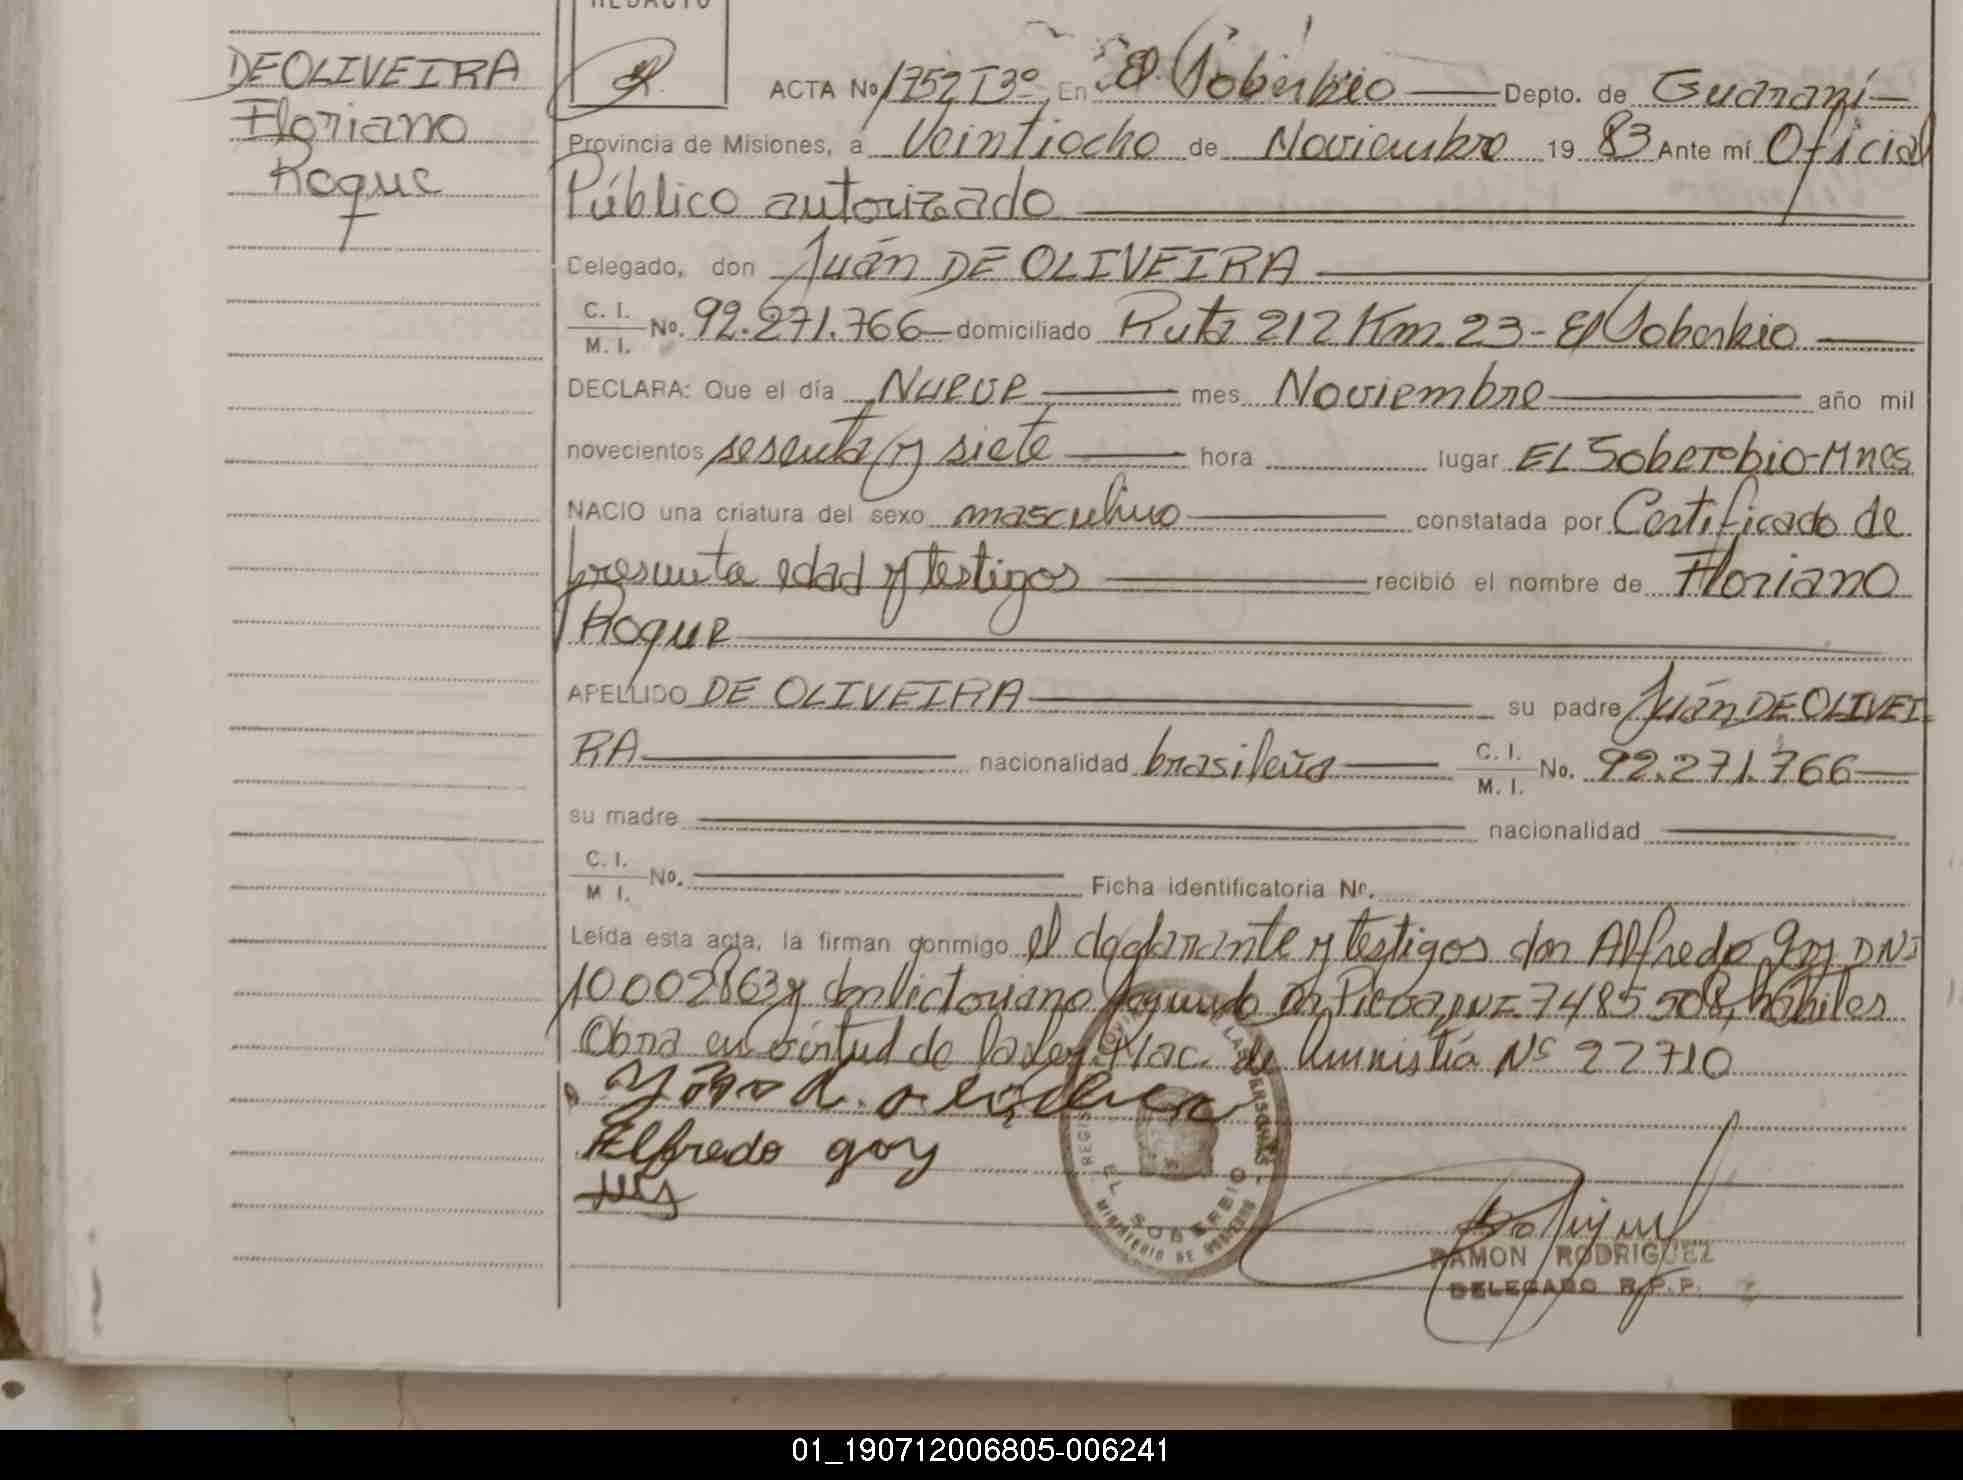 REDACTO
DE OLIVEIRA
Floriano
Roque
ACTA No 1752 T3º En El Soberbio Depto. de Guaraní
Provincia de Misiones, a Veintiocho de Noviembre 19 83 Ante mí Oficial
Público autorizado
Delegado, don Juán DE OLIVEIRA
C. I.
M. I. No. 92.271.766 domiciliado Ruta 212 Km. 23 - El Soberbio
DECLARA: Que el día Nueve mes Noviembre año mil
novecientos sesenta y siete hora lugar EL Soberbio-Mnes
NACIO una criatura del sexo masculino constatada por Certificado de
presunta edad y testigos recibió el nombre de Floriano
Roque
APELLIDO DE OLIVEIRA su padre Juán DE OLIVEI
RA nacionalidad brasileña C. I. M. I. No. 92.271.766
su madre nacionalidad
C. I.
M. I. No. Ficha identificatoria Nº.
Leída esta acta, la firman conmigo el declarante y testigos don Alfredo Goy DNI
10002863 y don Victoriano DNI 7485508, hábiles
Obra en virtud de la Ley Nac. de Amnistía Nº 22710
Alfredo goy
EL SOBERBIO
MINISTERIO DE GOBIERNO
RAMON RODRIGUEZ
DELEGADO R.P.P.
01_190712006805-006241